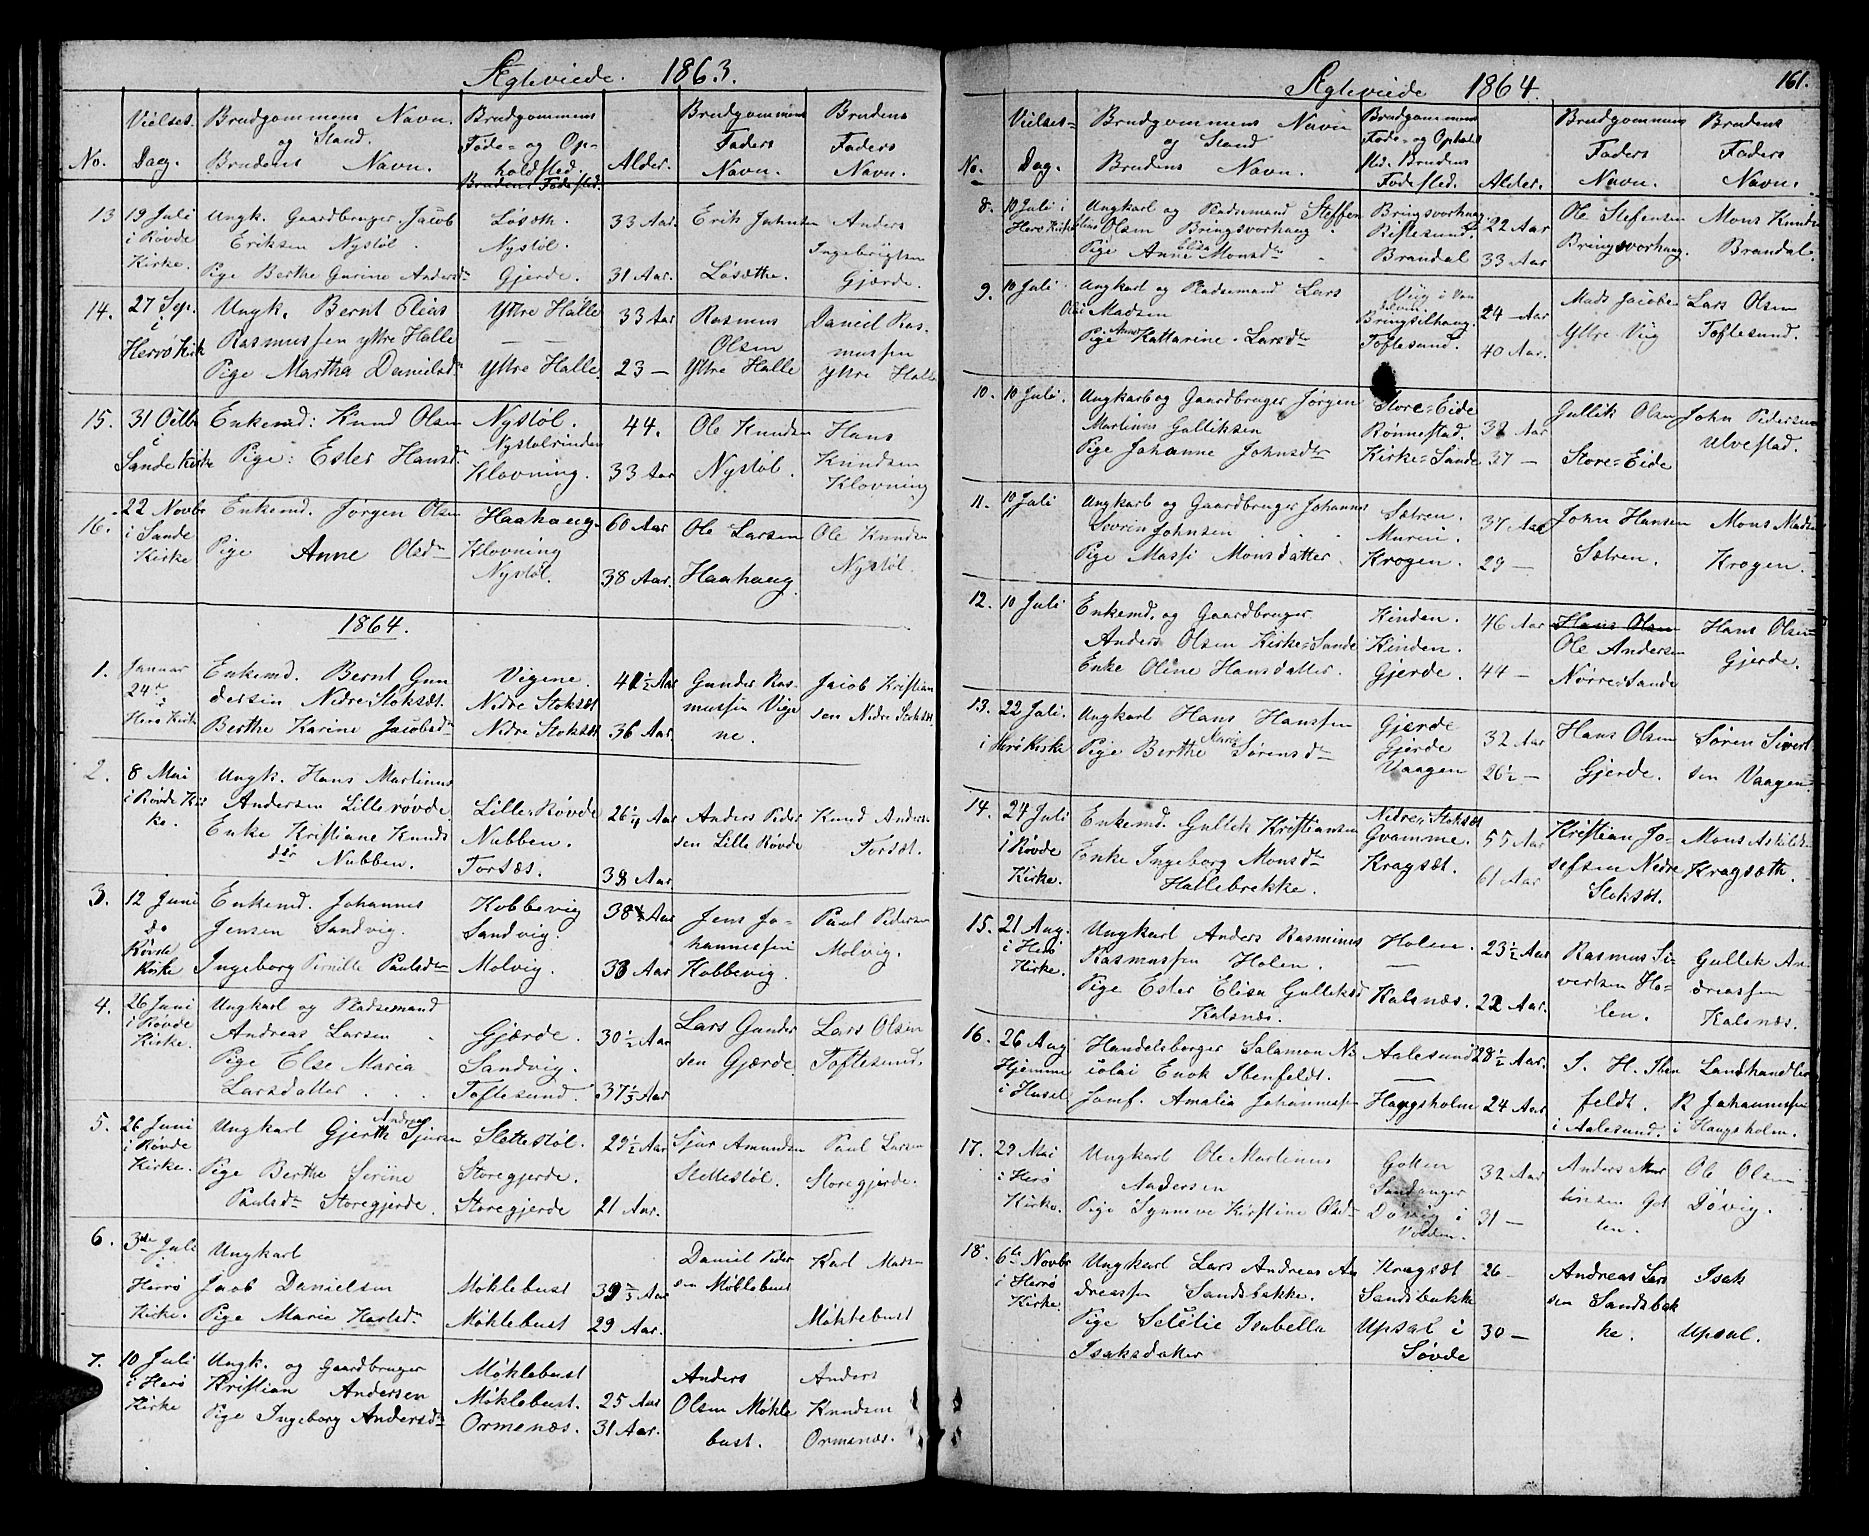 Ægteviede. 1863.
No.
Vielses-
Dag.
Brudgommens Navn
og Stand.
Brudens Navn.
Brudgommens
Føde- og Op-
holdsted.
Brudens Fødested.
Alder.
Brudgommens
Faders
Navn.
Brudens
Faders
Navn.
13
19 Juli
i Røvde
Kirke.
Ungk. Gaardbruger Jacob
Eriksen Nystøl.
Pige Berthe Gurine Andersdr
Løsæth.
Nystøl.
Gjerde.
33 Aar.
31 Aar.
Erik Johnsen
Løsæthe.
Anders
Ingebrigtsen
Gjærde.
14.
27 Sep.
i
Herrø Kirk
Ungk. Bernt Elias
Rasmussen yttre Halle
Pige Martha Danielsdr
Yttre Halle
— —
Yttre Halle.
33 Aar
23 —
Rasmus
Olsen
Yttre Halle
Daniel Ras-
mussen
yttre Halle
15.
31 Octbr
i
Sande Kirke
Enkemd: Knud Olsen
Pige: Ester Hansdr
Nystøl.
Nystølrinden
Klovning.
44.
33 Aar
Ole Knudsen
Nystøl.
Hans
Knudsen
Klovning
16.
22 Novbr
i Sande
Kirke
Enkemd. Jørgen Olsen
Pige Anne Olsdr
Haahaug.
Klovning
Nystøl.
60 Aar
38 Aar.
Ole Larsen
Haahaug.
Ole Knudsen
Nystøl.
1864.
1.
Januar
24de
i
Herø Kirk
Enkemd. Bernt Gun
dersen Nedre Stoksæt.
Berthe Karine Jacobsdr
Vigene.
Nedre Stoksæt
Nedre Stoksæt
41½ Aar
36 Aar.
Gunder Ras-
mussen Vige
ne.
Jacob Kristian
sen Nedre Stoksæt.
2.
8 Mai
i Røvde Kir
ke.
Ungk. Hans Martinus
Andersen Lillerøvde.
Enke Kristiane Knuds
dtr Nubben.
Lille-Røvde
Nubben.
Torsæt.
26¼ Aar
38 Aar
Anders Peder
sen Lille Røvde
Knud Anders
Torsæt.
3.
12 Juni
do
Røvde
Kirke
Enkemd. Johannes
Jensen Sandvig.
Ingeborg Pernille Paulsdr
Kobbevig
Sandvig.
Molvig.
38½ Aar
38 Aar
Jens Jo-
hannessen
Kobbevig.
Paul Pedersen
Molvig.
4.
26 Juni
i Røvde
Kirke.
Ungkarl og Pladsemand
Andreas Larsen
Pige Else Maria
Larsdatter
Gjærde.
Sandvig.
Toftesund.
30½ Aar
37⅓ Aar
Lars Gunder
sen Gjærde.
Lars Olsen
Toftesund.
5.
26 Juni
i Røvde
Kirke.
Ungkarl Gjerth Andreas Sjursen
Pige Berthe Serine
Paulsdr Storegjerde.
Slettestøl.
Storegjerde.
Storegjerde
29½ Aar
21 Aar.
Sjur Amundsen
Slettestøl.
Paul Larsen
Storegjerde.
6.
3die Juli
i
Herrø
Kirke.
Ungkarl
Jacob Danielsen
Pige Marie Karlsdr
Møklebust
Møklebust.
39⅔ Aar
29 Aar.
Daniel Peder
sen Møklebust
Karl Mads-
Møklebust
7.
10 Juli
i Herø
Kirke
Ungk. og Gaardbruger
Kristian Andersen
Pige Ingeborg Andersdr
Møklebust
Møklebust.
Ormenæs.
25 Aar
31 Aar.
Anders
Olsen Møkle
bust.
Anders
Knudsen
Ormenæs.
Ægteviede 1864.
161.
No.
Vielses-
Dag.
Brudgommens Navn
og Stand
Brudens Navn.
Brudgommens
Føde- og Ophold
sted. Brudens
Fødested.
Alder.
Brudgommens
Faders
Navn.
Brudens
Faders
Navn.
8.
10 Juli i
Herø Kirke
Ungkarl og Pladsemand Steffen
Elias Olsen Bringsvorhaug.
Pige Anne Elisa Monsdr
Bringsvorhaug.
Riflesund.
Brandal
22 Aar
33 Aar
Ole Stefensen
Bringsvorhaug.
Mons Knudsen
Brandal.
9.
10 Juli.
Ungkarl og Pladsemand Lars
Olai Madsen
Pige Anne Kattarine Larsdr
Viig i Van
delven.
Bringsilhaug.
Toftesund.
24 — Aar
40 Aar.
Mads Jacobsen
Yttre Viig
Lars Olsen
Toftesund.
10.
10 Juli.
Ungkarl og Gaardbruger Jørgen
Martinus Gulliksen
Pige Johanne Johnsdtr
Store-Eide
Rønnestad.
Kirke-Sande
32 Aar
37 —
Gullik Olsen
Store-Eide
John Pedersen
Ulvestad.
11.
10 Juli
Ungkarl og Gaardbruger Johannes
Severin Johnsen
Pige Massi Monsdatter.
Sætren.
Murin.
Krogen.
37 Aar
29 —
John Hansen
Sætren.
Mons Madsen
Krogen.
12.
10 Juli
Enkemd. og Gaardbruger
Anders Olsen Kirke-Sande
Enke Oline Hansdatter.
Kinden.
Kinden.
Gjerde.
46 Aar
44 —
Hans Olsen
Ole Andersen
Nørre-Sande
Hans Olsen
Gjerde.
13.
22 Juli.
i Herø Kirke
Ungkarl Hans Hanssen
Pige Berthe Marie Sørensdr
Gjerde
Gjerde
Vaagen
32 Aar
26½ —
Hans Olsen
Gjerde.
Søren Sivert
sen Vaagen.
14.
24 Juli
i Røvde
Kirke.
Enkemd. Gullik Kristiansen
Enke Ingeborg Monsdr
Hallebrekke.
Nedre-Stoksæt
Gvamme.
Kragsæt.
55 Aar
61 Aar
Kristian Jo-
sefsen Nedre
Stoksæt.
Mons Aslak-
Kragsæth.
15.
21 Aug.
i Herø
Kirke.
Ungkarl Anders Rasminus
Rasmussen Holen.
Pige Ester Elisa Gulleksd
Kalsnæs.
Holen.
—
Kalsnæs.
23½ Aar
22 Aar.
Rasmus Si-
vertsen Ho-
len.
Gullek An-
dreassen
Kalsnæs.
16.
26 Aug
Hjemme
i Huset
Handelsborger Salamon Ni
colai Enok Ibenfeldt.
Jomf. Amalia Johannessen
Aalesund
—
Haugsholm
28½ Aar.
24 Aar
S. H. Iben
feldt.
i Aalesund.
Landhandler
R Johannessen
i Haugsholm.
17.
29 Mai
i Herø
Kirke.
Ungkarl Ole Martinus
Andersen
Pige Synneve Kirstine Olsdr
Gotten
Sandanger
Døvig i
Volden.
32 Aar
31 —
Anders Mar
tinsen Got
ten.
Ole Olsen
Døvig.
18.
6te Novbr
i Herrø
Kirke.
Ungkarl Lars Andreas An
dreassen Sandsbakke.
Pige Selelie Isabella
Isaksdatter
Kragsæt
Sandsbakke
Upsal i
Søvde
26 —
30 —
Andreas Lars
sen Sandsbak
ke.
Isak
Upsal.